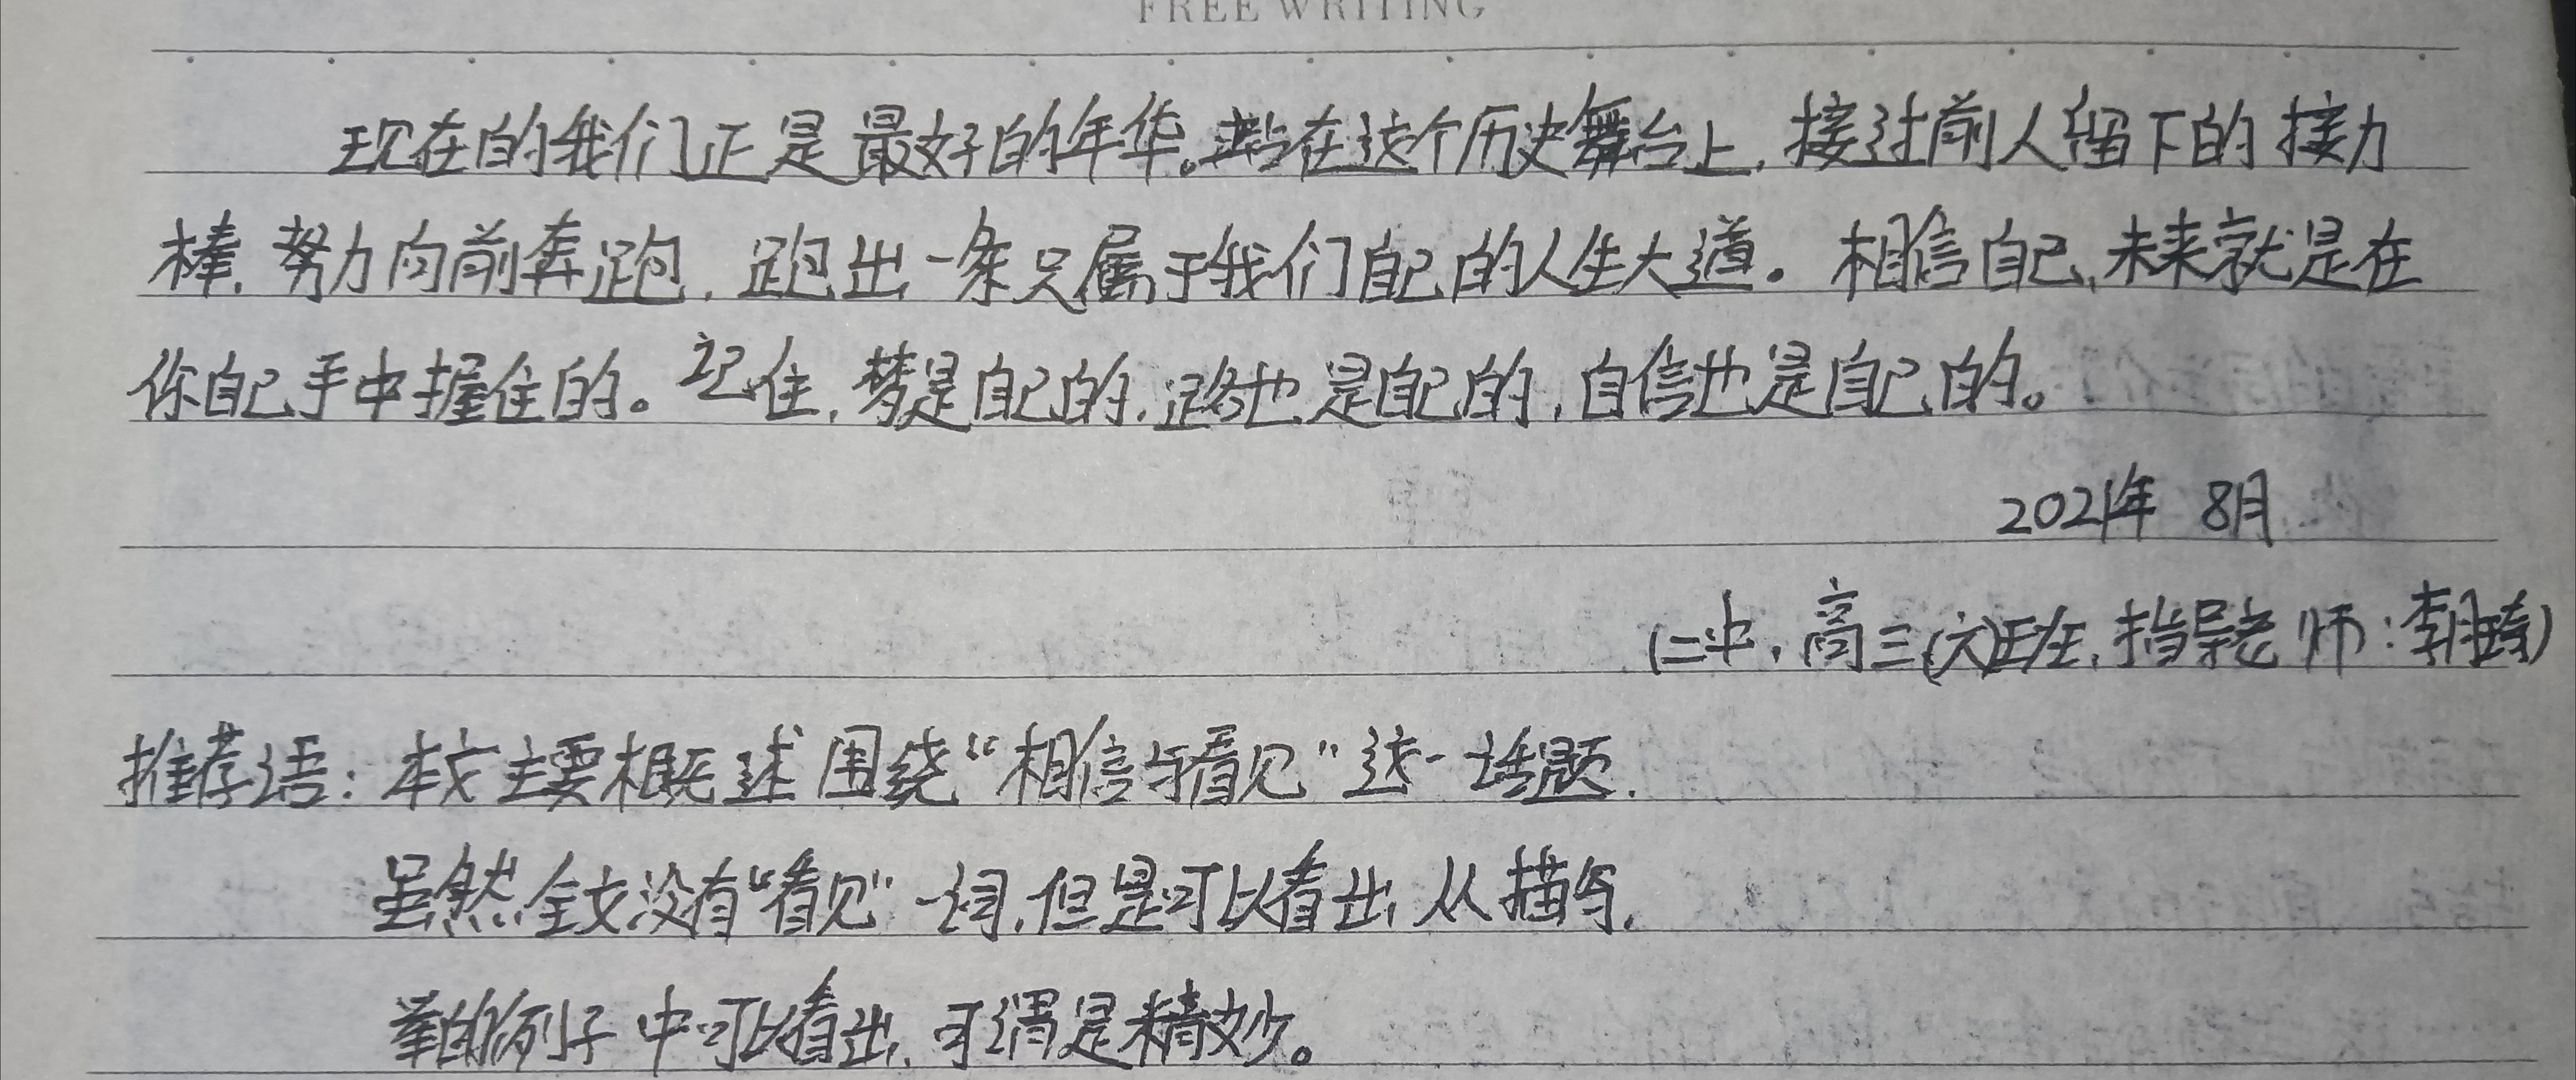 FREE WRITING
现在的我们正是最好的年华。站在这个历史舞台上,接过前人留下的接力
棒,努力向前奔跑,跑出一条只属于我们自己的人生大道。相信自己,未来就是在
你自己手中握住的。记住,梦是自己的,路也是自己的,自信也是自己的。
2021年 8月
(二中,高三(六)班,指导老师:李)
推荐语:本文主要概述围绕“相信与看见”这一话题.
虽然全文没有“看见”一词,但是可以看出从描写,
举的例子中可以看出,可谓是精妙。